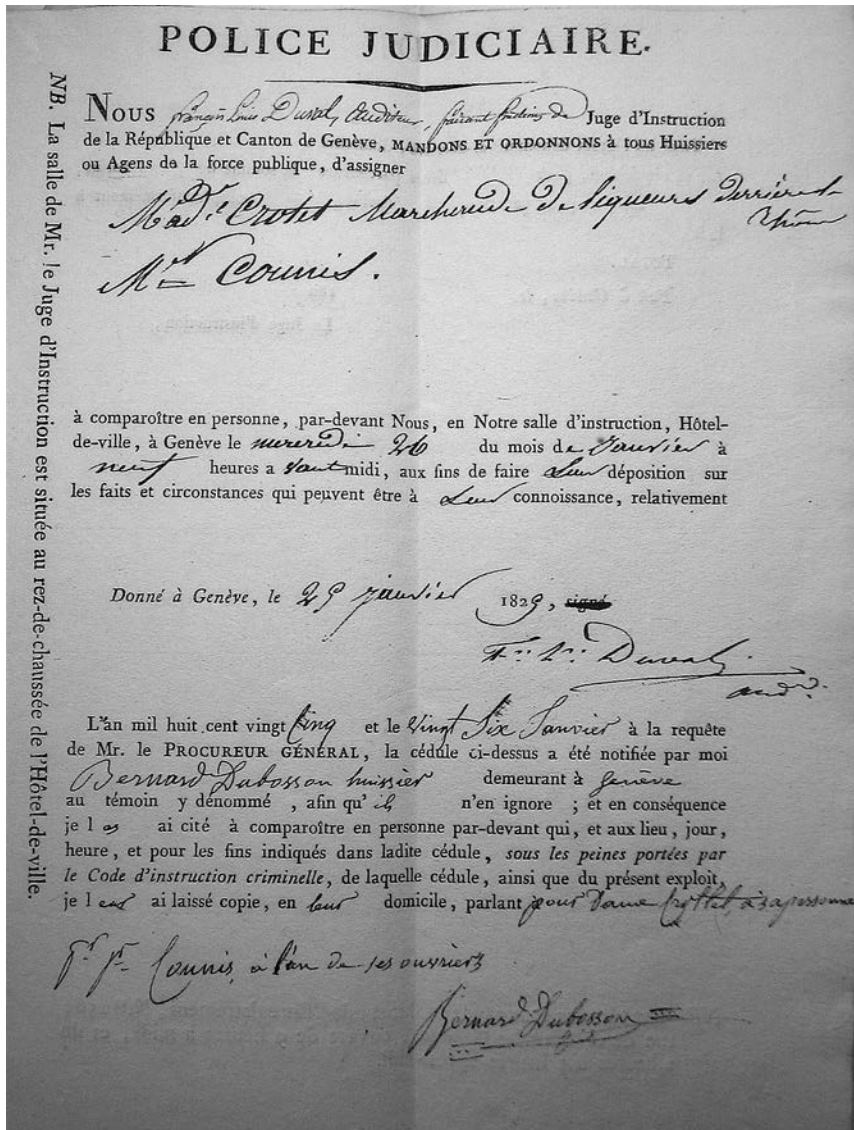 POLICE JUDICIAIRE.
NB. La salle de Mr. le Juge d'Instruction est située au rez-de-chaussée de l'Hôtel-de-ville.
Nous françois Louis Duval, Auditeur, faisant fonctions de Juge d'Instruction
de la République et Canton de Genève, MANDONS ET ORDONNONS à tous Huissiers
ou Agens de la force publique, d'assigner
Mad.e Crotet Marchande de liqueurs derrière le
Rhône
Mr Counis.
à comparoître en personne, par-devant Nous, en Notre salle d'instruction, Hôtel-
de-ville, à Genève le mercredi 26 du mois de Janvier à
neuf heures a vant midi, aux fins de faire Leur déposition sur
les faits et circonstances qui peuvent être à Leur connoissance, relativement
Donné à Genève, le 25 janvier 1825, signé
Fs. Ls. Duval.
audr.
L'an mil huit cent vingt Cinq et le vingt Six Janvier à la requête
de Mr. le PROCUREUR GÉNÉRAL, la cédule ci-dessus a été notifiée par moi
Bernard Dubosson huissier demeurant à Genève
au témoin y dénommé , afin qu' ils n'en ignore ; et en conséquence
je l es ai cité à comparoître en personne par-devant qui, et aux lieu, jour,
heure, et pour les fins indiqués dans ladite cédule, sous les peines portées par
le Code d'instruction criminelle, de laquelle cédule, ainsi que du présent exploit,
je l eur ai laissé copie, en leur domicile, parlant pour Dame Crottet, à sa personne
Counis, à l'un de ses ouvriers
Bernard Dubosson